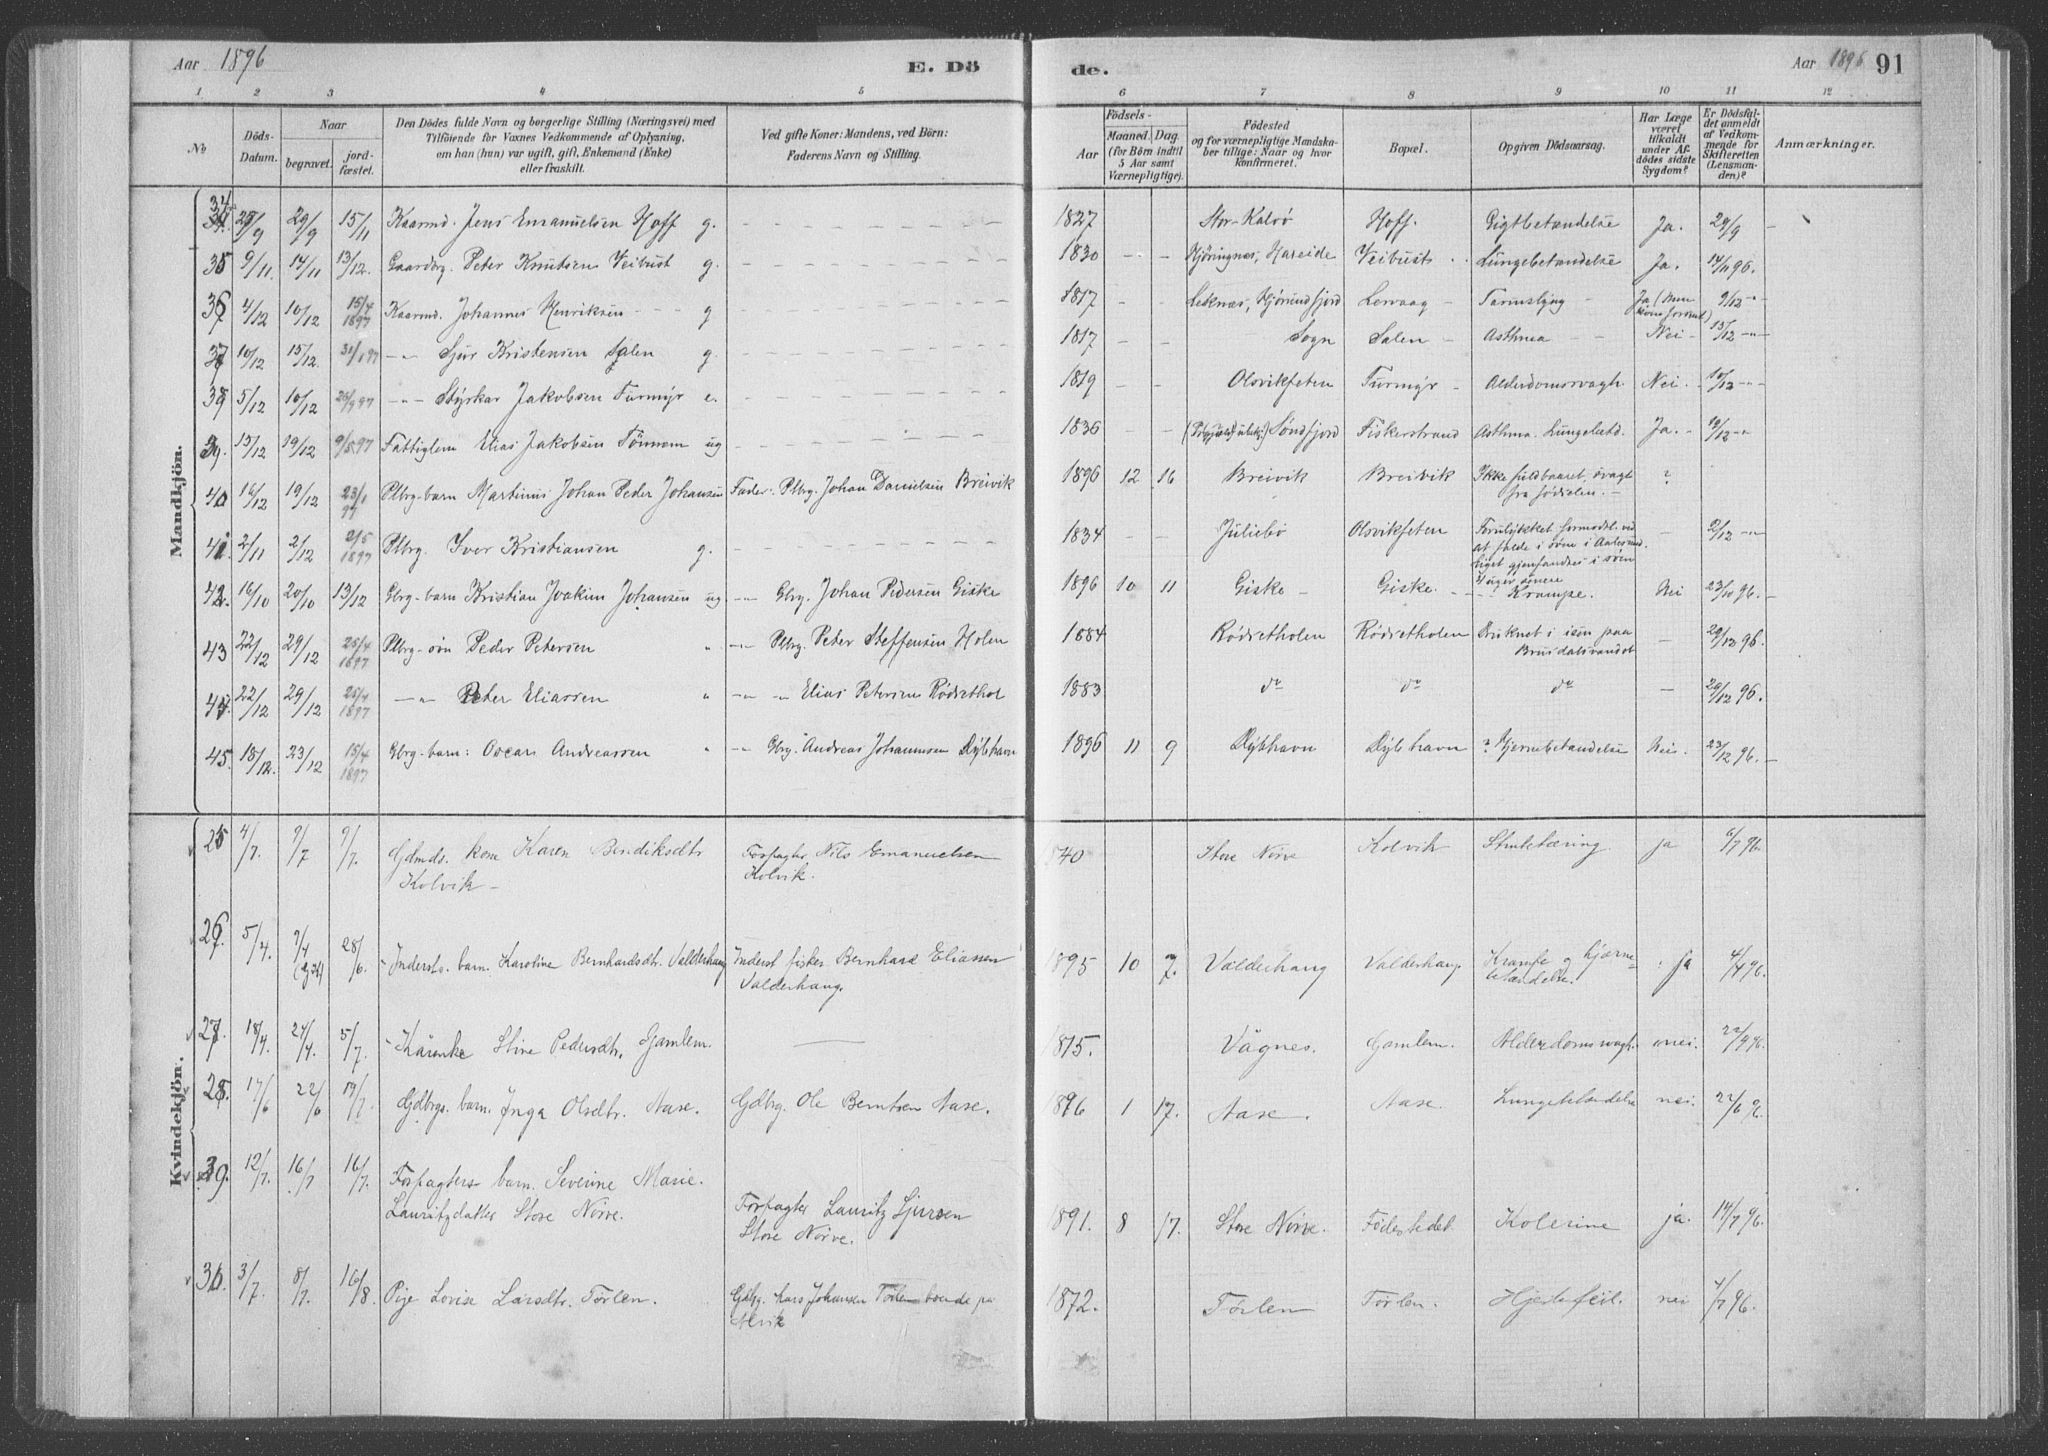 Aar 1896
E. Dö
de.
Aar 1896 91
1 2 3 4 5 6 7 8 9 10 11 12
No
Döds-Datum.
Naar
begravet.
jord-fæstet.
Den Dödes fulde Navn og borgerlige Stilling (Næringsvei) med
Tilföiende for Voxnes Vedkommende af Oplysning,
om han (hun) var ugift, gift, Enkemand (Enke)
eller fraskilt.
Ved gifte Koner: Mandens, ved Börn:
Faderens Navn og Stilling.
Födsels-
Aar
Maaned. Dag.
(for Börn indtil
5 Aar samt
Værnepligtige).
Födested
og for værnepligtige Mandska-
ber tillige: Naar og hvor
konfirmeret.
Bopæl.
Opgiven Dödsaarsag.
Har Læge
været
tilkaldt
under Af-
dödes sidste
Sygdom?
Er Dödsfal-
det anmeldt
af Vedkom-
mende for
Skifteretten
(Lensman-
den)?
Anmærkninger.
Mandkjön.
34 29/9 15/11 Kaarmd. Jens Emanuelsen Hoff g. 1827 Stor-Kalvö Hoff. Gigtbetændelse Ja. 29/9
35 9/11. 14/11 13/12. Gaardbrg. Peter Knutsen Veibust g. 1830 Hjöringnes, Hareide Veibust Lungebetændelse Ja. 14/11 96.
36 4/12 10/12 15/4 1897 Kaarmd. Johannes Henriksen g 1817 Leknes, Hjörundfjord Lervaag Tarmslyng Ja 9/12 -"-
37 10/12 15/12 31/1 97 -"- Sjur Kristensen Salen g. 1817 Sogn Salen Asthma Nei 15/12 -"-
38 5/12 10/12 25/4 97 -"- Styrkar Jakobsen Furmyr e. 1819 Olsvikfeten Furmyr Alderdomssvagh. Nei. 10/12 -"-
39. 13/12 19/12 9/5 97 Fattiglem Elias Jakobsen Tönnem ug 1836 Söndfjord Fiskerstrand Asthma. Lungebetd. Ja. 19/12 -"-
40 16/12 19/12 23/1 97 Plbrg-barn Martinus Johan Peder Johansen Fader: Plbrg. Johan Danielsen Breivik 1896 12 16 Breivik Breivik Ikke fuldbaaret, svagt ?
fra födselen.
41 2/11 2/12 2/5 1897 Plbrg. Iver Kristiansen g. 1834 Juliebö Olsvikfeten Forulykket formodtl. ved 2/12 -"-
at falde i söen i Aalesund.
Liget gjenfandtes i söen
4 uger senere
42. 16/10 20/10 13/12 Gbrg-barn Kristian Joakim Johansen ug -"- Gbrg. Johan Pedersen Giske 1896 10 11 Giske Giske. Krampe. Nei 23/10 96.
43 22/12 29/12 25/4 1897 Plbrg-sön Peder Petersen " -"- Plbrg. Peter Steffensen Holen 1884 Rödsetholen Rödsetholen Druknet i isen paa 29/12 96.
Brusdalsvandet
44. 22/12 29/12 25/4 1897 -"- Peter Eliassen " -"- " Elias Petersen Rödsethol 1883 do do do 29/12 96.
45. 18/12. 23/12 15/4 1897 Gbrg-barn: Oscar Andreassen " -"- Gbrg. Andreas Johannesen Dybhavn 1896 11 9 Dybhavn Dybhavn ? Hjernebetændelse Nei. 23/12 96.
Kvindekjön.
25 4/7. 9/7 9/7. Gdmds. kone Karen Bendiksdtr Forpagter Nils Emanuelsen 1840 Store Nörve Kolvik Strubetæring. ja 6/7 96.
Kolvik Kolvik.
26. 5/4. 9/4 28/6. Indersts. barn. Karoline Bernhardsdtr. Valderhaug Inderst fisker Bernhard Eliassen 1895 10 7. Valderhaug Valderhaug. Krampe og hjerne- ja 4/4 96.
Valderhaug. betændelse.
27. 18/4. 24/4. 5/7. Kårenke Stine Pedersdtr. Gamlem. 1815. Vågnes. Gamlem. Alderdomssvagh. nei. 22/4 96.
28. 17/6 22/6 19/7. Gdbrgs. barn. Inga Olsdtr. Aase. Gdbrg. Ole Berntsen Aase. 1896 1 17. Aase. Aase. Lungebetændelse nei. 22/6 96.
29. 12/7. 16/7 16/7. Forpagters barn. Severine Marie. Forpagter Lauritz Sjursen 1891. 8 17. Store Nörve. Födestedet Kolerine ja. 14/7 96.
Lauritzdatter Store Nörve. Store Nörve.
30 3/7. 8/7. 16/8. Pige Lovise Larsdtr. Törlen. Gdbrg. Lars Johansen Törlen boende på 1872. Törlen Törlen. Hjertefeil. nei 7/7 96.
Alvik